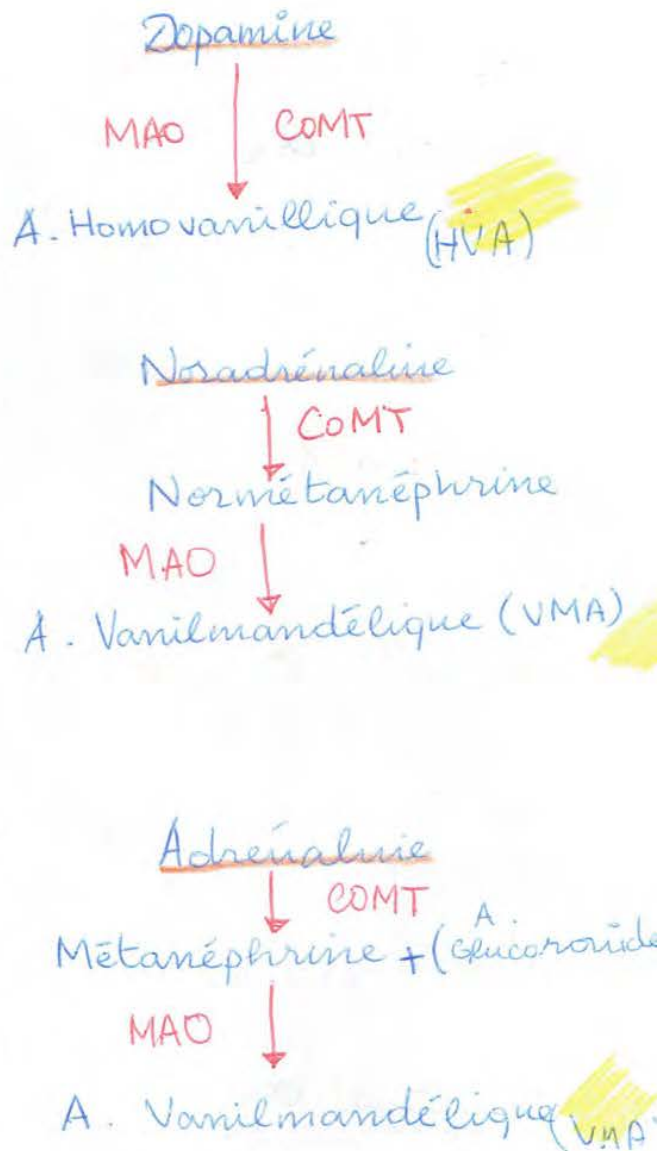 Dopamine
MAO COMT
A. Homovanillique (HVA)
Noradrénaline
COMT
Normétanéphrine
MAO
A. Vanilmandélique (VMA)
Adrénaline
COMT
A.
Métanéphrine + (Glucoronide
MAO
A. Vanilmandélique (VMA)